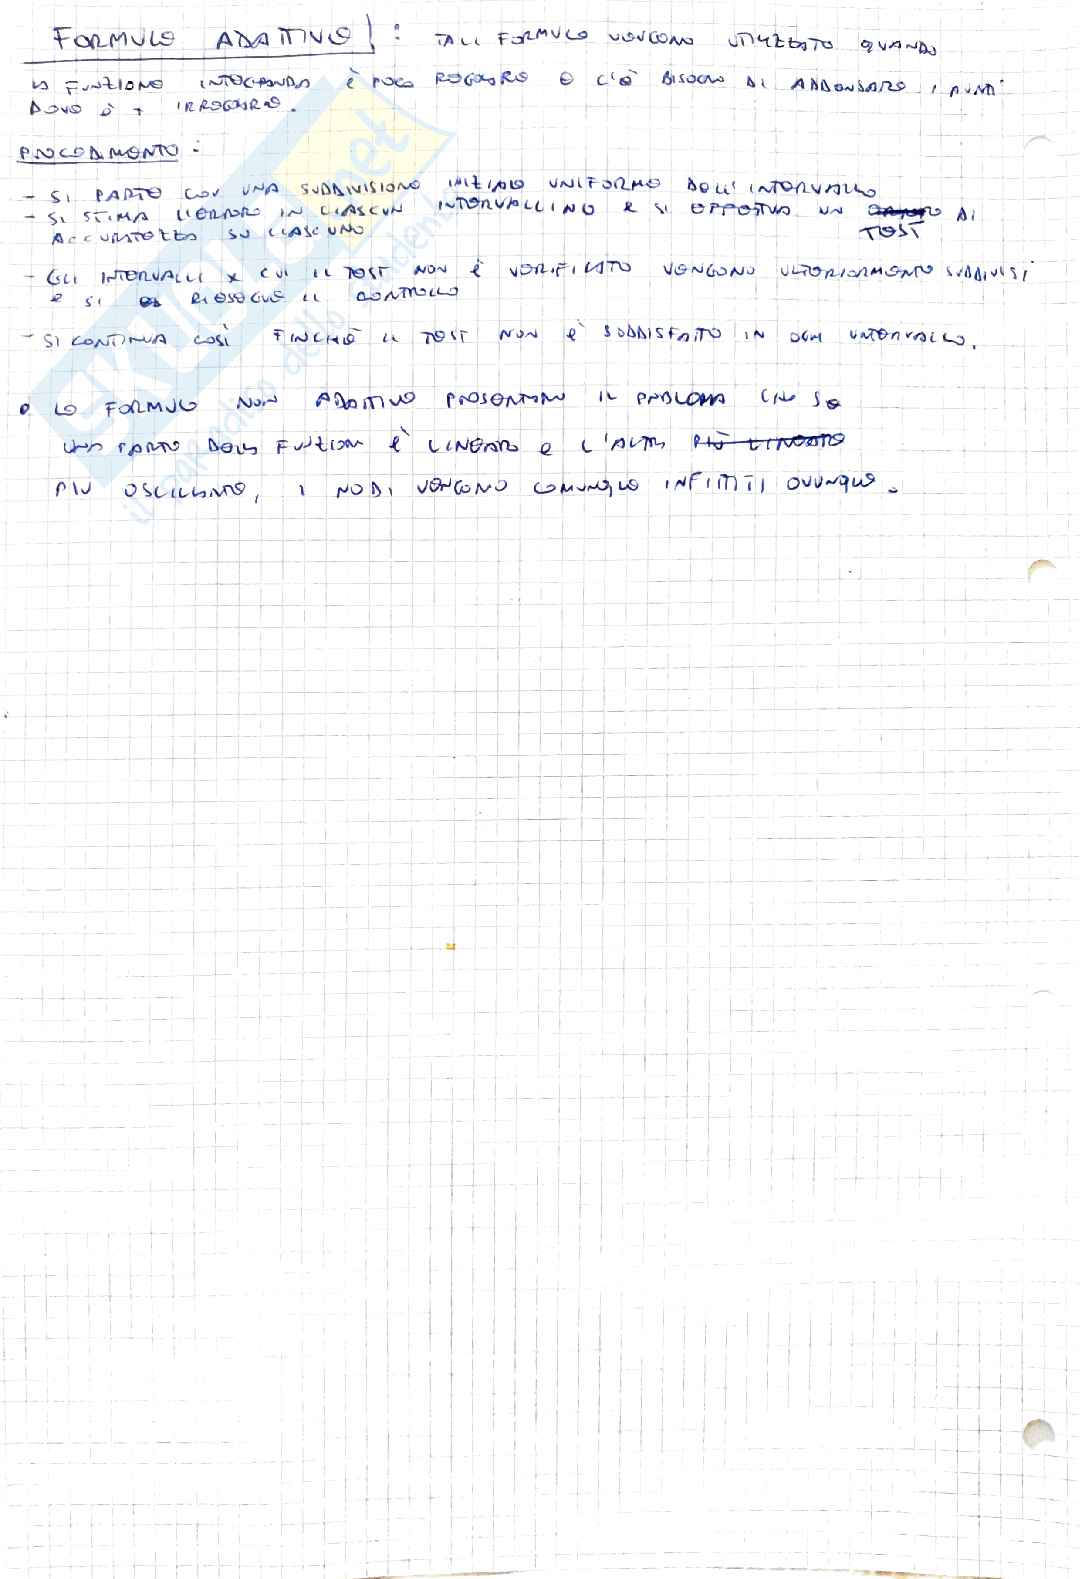 FORMULE ADATTIVE : TALI FORMULE VENGONO UTILIZZATE QUANDO
LA FUNZIONE INTEGRANDA È POCO REGOLARE E C'È BISOGNO DI ADDENSARE I PUNTI
DOVE È + IRREGOLARE.
PROCEDIMENTO:
- SI PARTE CON UNA SUDDIVISIONE INIZIALE UNIFORME DELL'INTERVALLO
- SI STIMA L'ERRORE IN CIASCUN INTERVALLINO E SI EFFETTUA UN DI
TEST
ACCURATEZZA SU CIASCUNO
- GLI INTERVALLI X CUI IL TEST NON È VERIFICATO VENGONO ULTERIORMENTE SUDDIVISI
E SI RIESEGUE IL CONTROLLO
- SI CONTINUA COSÌ FINCHÈ IL TEST NON È SODDISFATTO IN OGNI INTERVALLO.
• LE FORMULE NON ADATTIVE PRESENTANO IL PROBLEMA CHE SE
UNA PARTE DELLA FUNZIONE È LINEARE E L'ALTRA PIÙ LINEARE
PIÙ OSCILLANTE, I NODI VENGONO COMUNQUE INFITTITI OVUNQUE.
SKUOLA.net
il paradiso dello studente